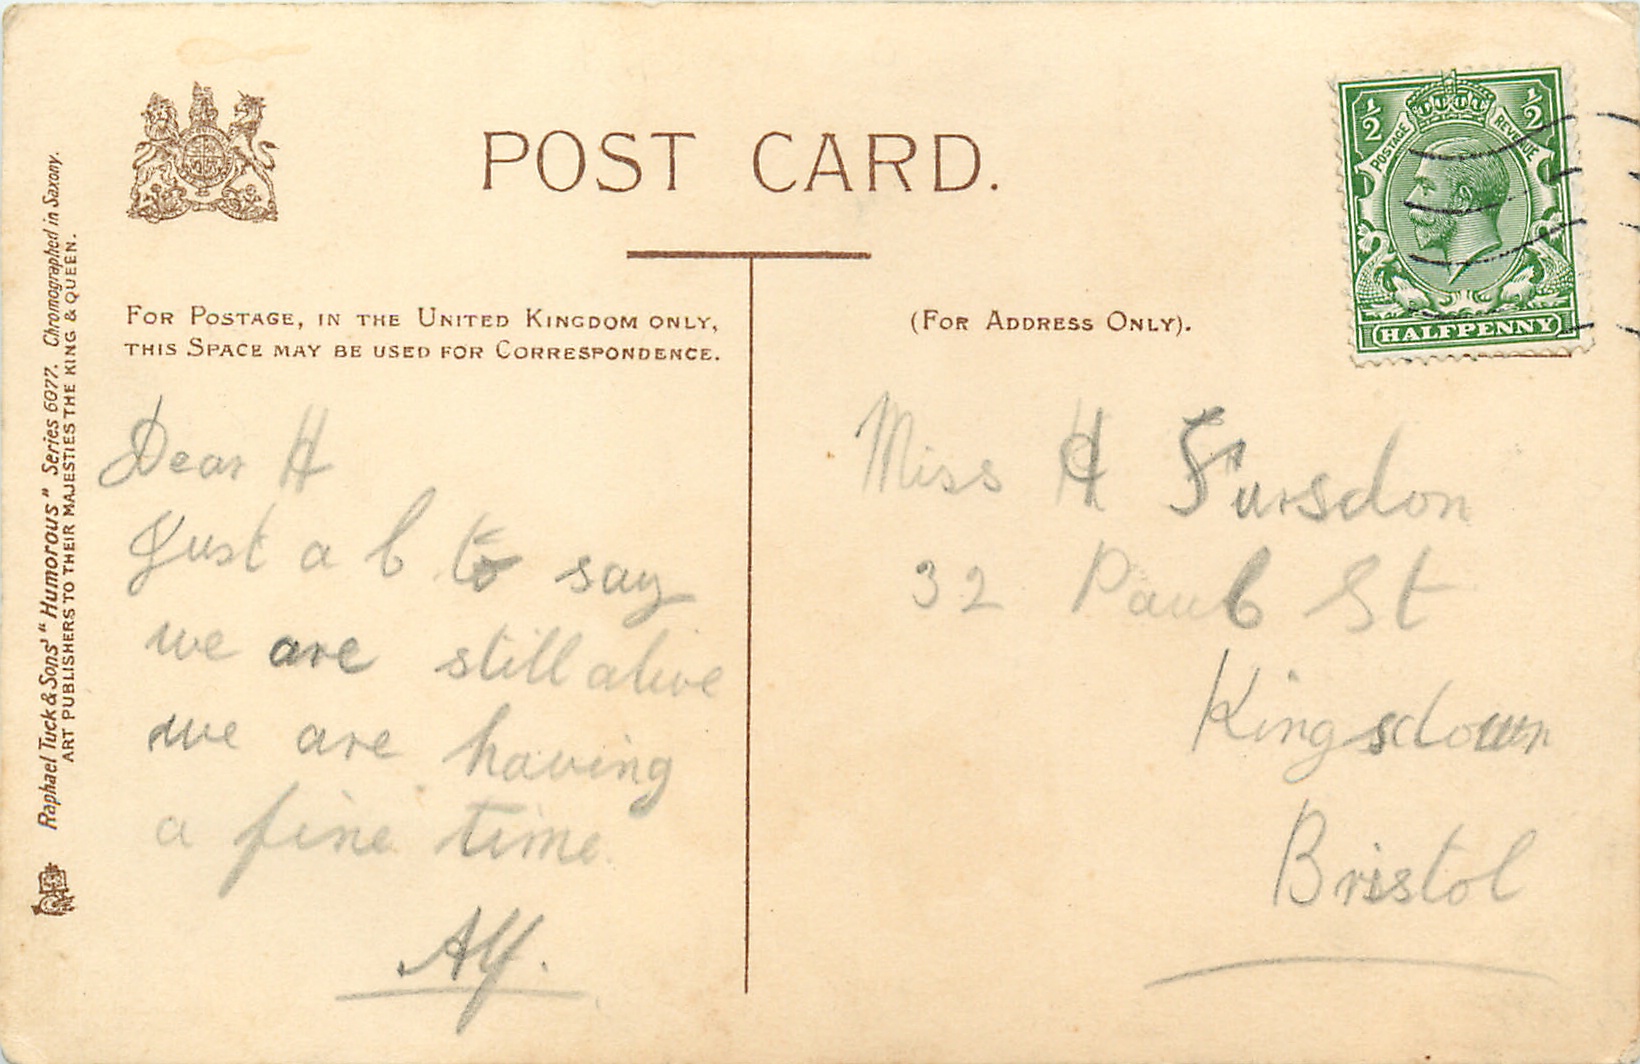 POST CARD.
FOR POSTAGE, IN THE UNITED KINGDOM ONLY,
THIS SPACE MAY BE USED FOR CORRESPONDENCE.
(FOR ADDRESS ONLY).
½ ½
POSTAGE REVENUE
HALFPENNY
Raphael Tuck & Sons' "Humorous" Series 6077. Chromographed in Saxony.
ART PUBLISHERS TO THEIR MAJESTIES THE KING & QUEEN.
Dear H
Just a b to say
we are still alive
we are having
a fine time
Alf.
Miss H Fursdon
32 Paul St
Kingsdown
Bristol